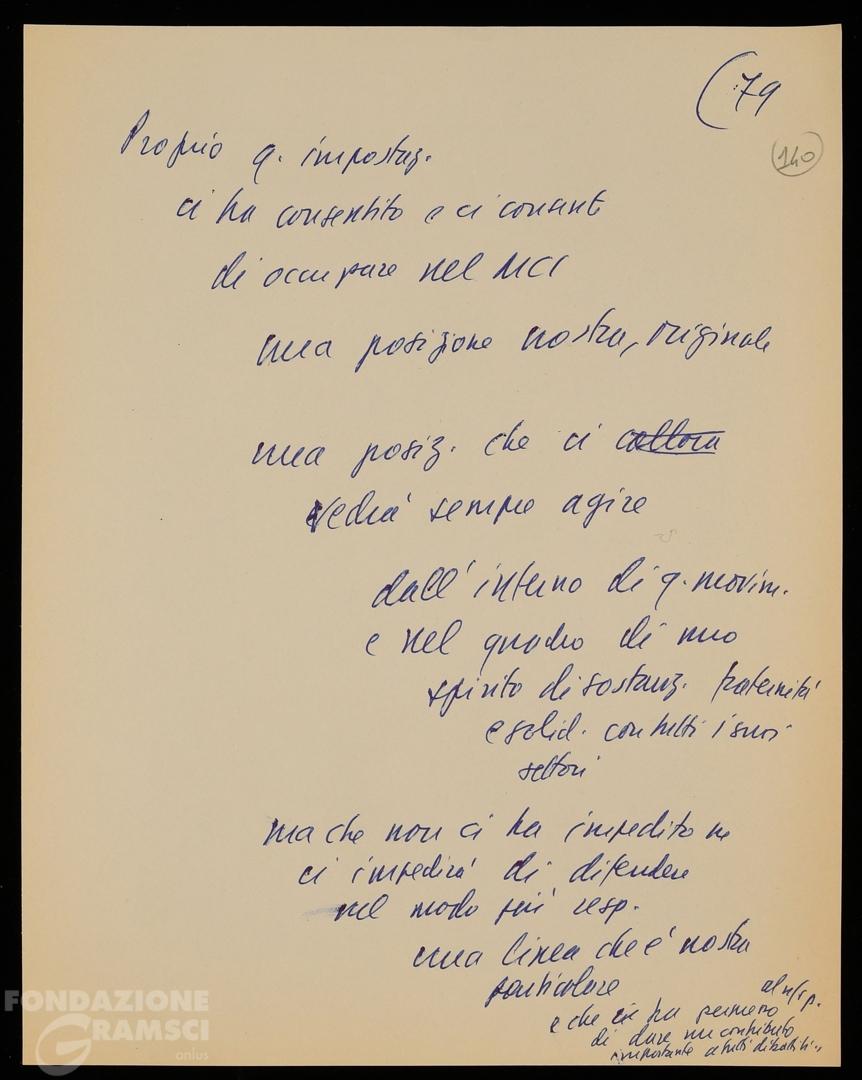 (79
140
Proprio q. impostaz.
ci ha consentito e ci consent
di occupare nel MCI
una posizione nostra, originale
una posiz. che ci colloca
vedrà sempre agire
dall'interno di q. movim.
e nel quadro di uno
spirito di sostanz. fraternità
e solid. con tutti i suoi
settori
ma che non ci ha impedito ne
ci impedirà di difendere
nel modo più resp.
una linea che è nostra
particolare
al n/ p.
e che ha permesso
di dare un contributo
importante a tutti
FONDAZIONE
GRAMSCI
onlus